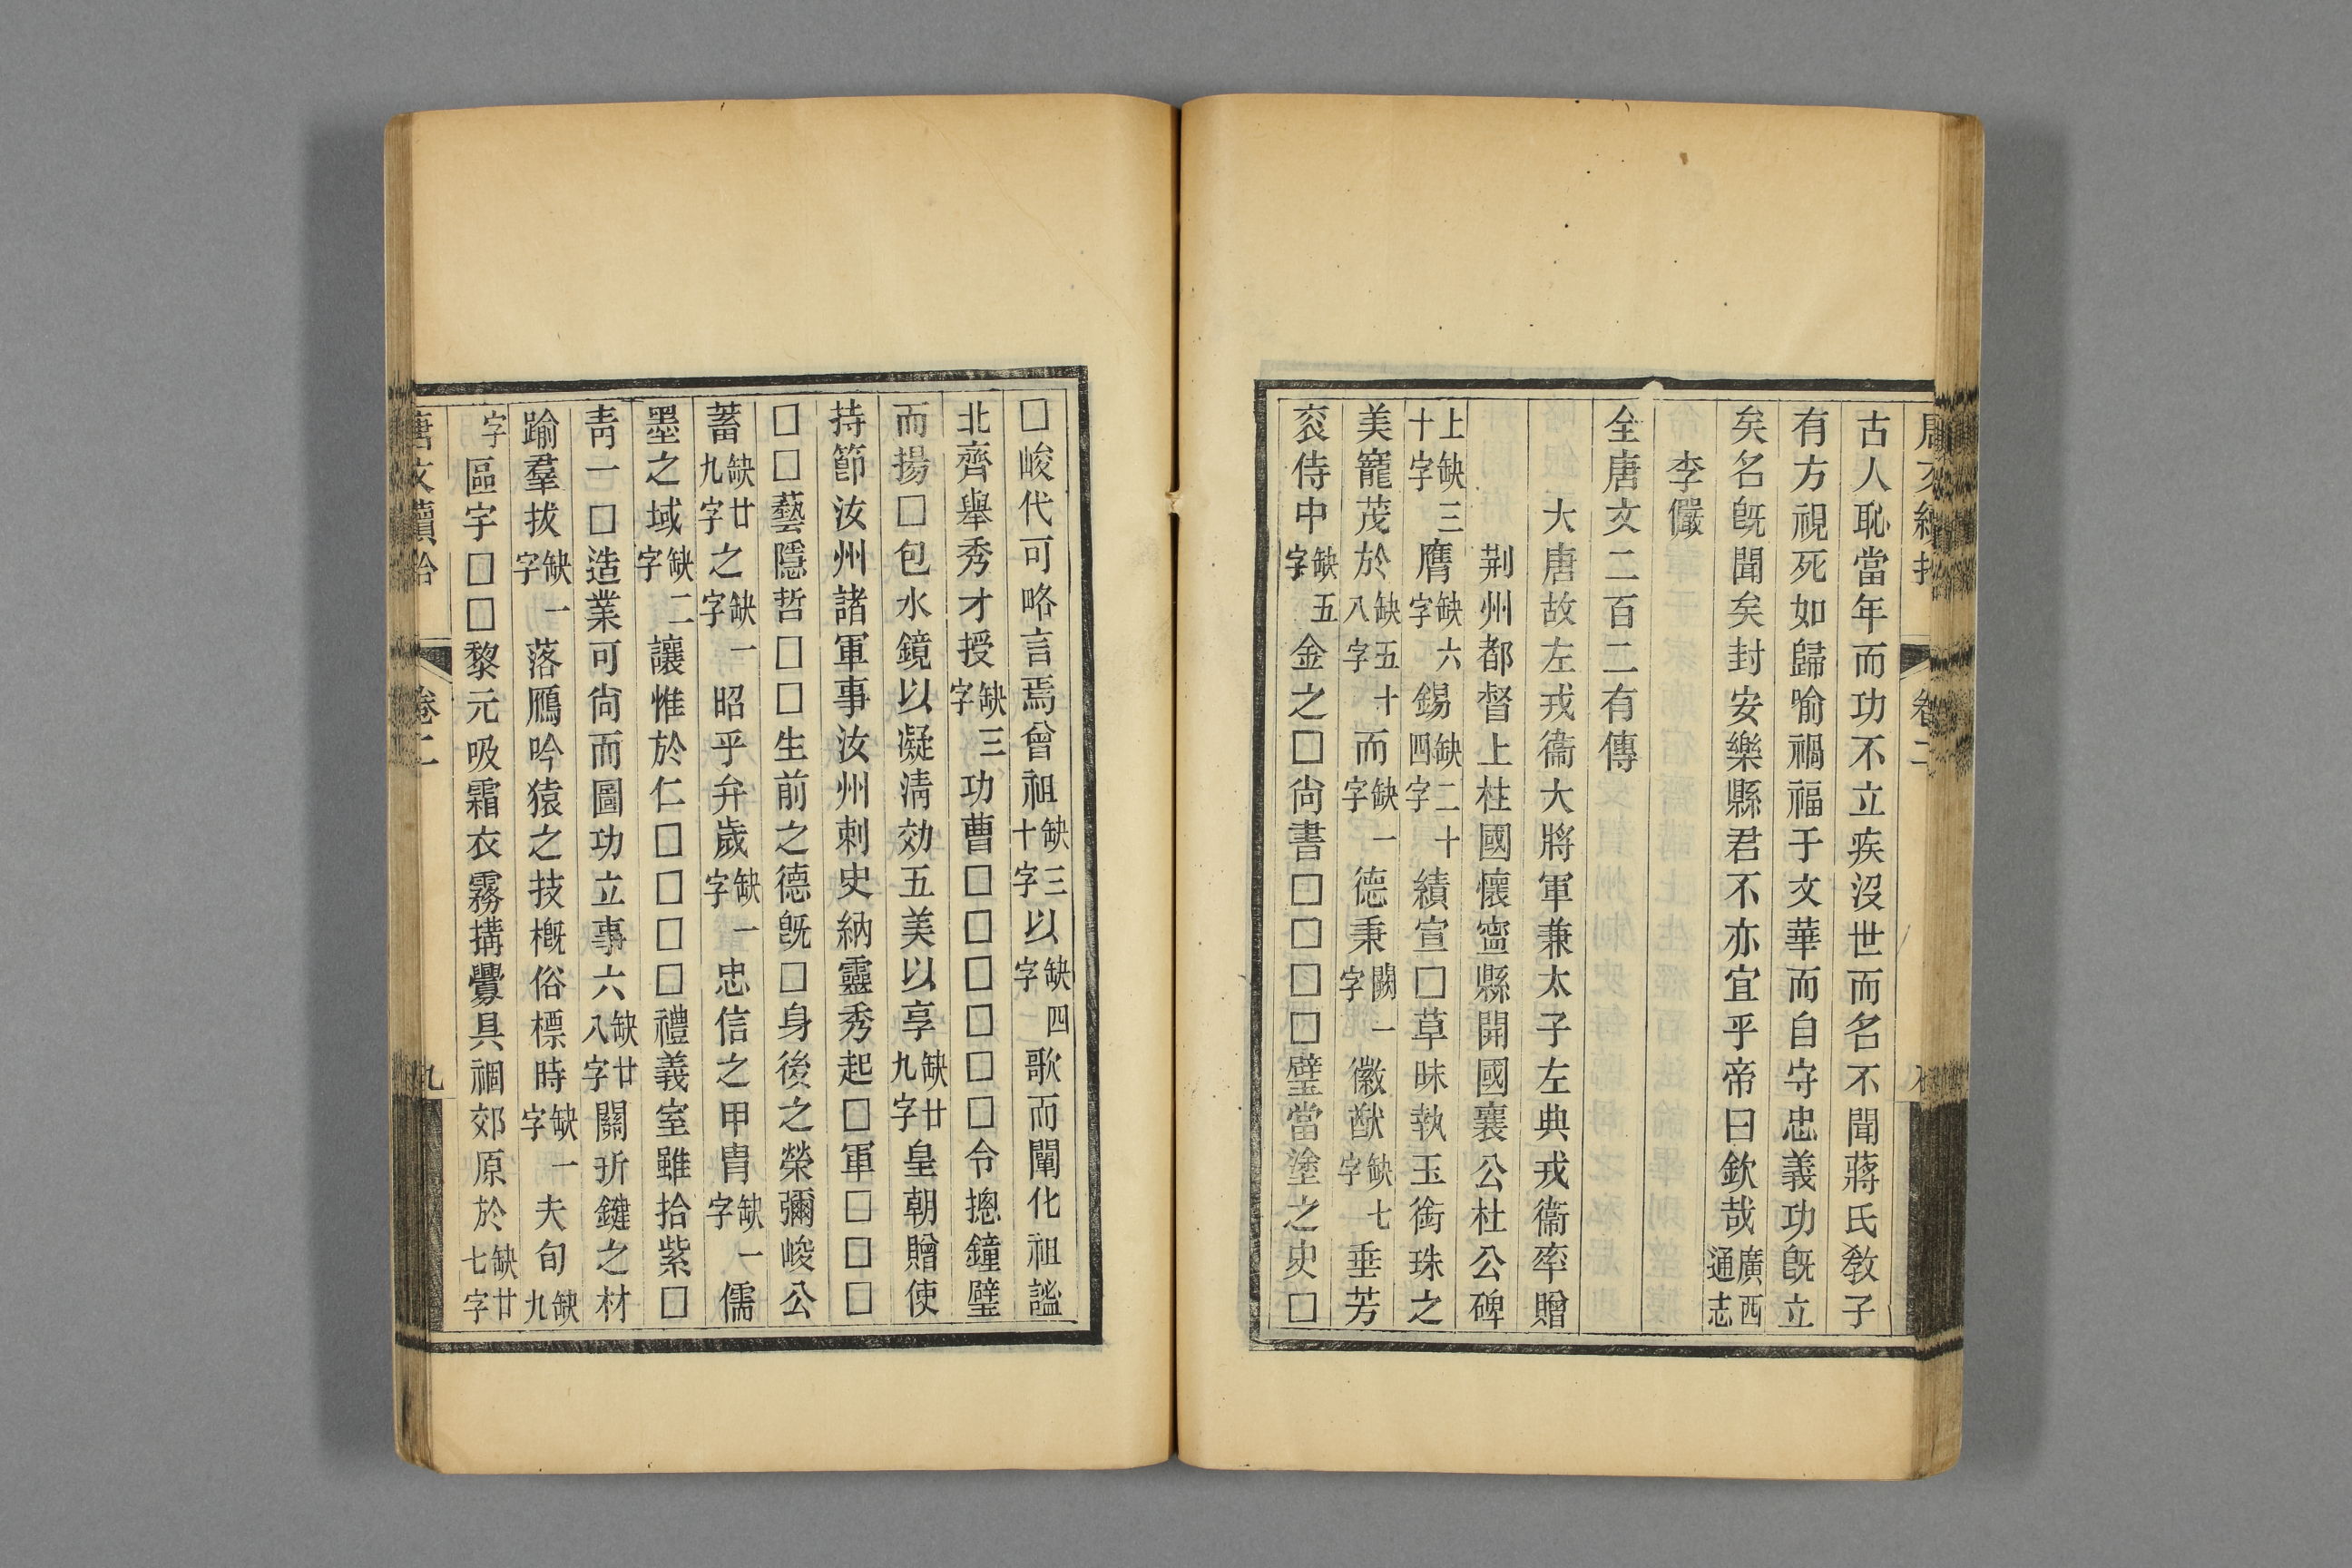 古人恥當年而功不立疾沒世而名不聞蔣氏敎子
有方視死如歸喻禍福于文華而自守忠義功旣立
矣名旣聞矣封安樂縣君不亦宜乎帝曰欽哉廣西通志
李儼
全唐文二百二有傳
大唐故左戎衞大將軍兼太子左典戎衞率贈
荆州都督上柱國懷寍縣開國襄公杜公碑
上缺三十字膺缺六字錫缺二十四字績宣□草昧執玉銜珠之
美寵茂於缺五十八字而缺一字德秉闕一字徽猷缺七字垂芳
衮侍中缺五字金之□尙書□□□□璧當塗之史□
□峻代可略言焉曾祖缺三十字以缺四字歌而闡化祖謐
北齊舉秀才授缺三字功曹□□□□□□令摠鐘璧
而揚□包水鏡以凝淸効五美以享缺廿九字皇朝贈使
持節汝州諸軍事汝州刺史納靈秀起□軍□□□
□□藝隱哲□□生前之德旣□身後之榮彌峻公
蓄缺廿九字之缺一字昭乎弁歲缺一字忠信之甲胄缺一字儒
墨之域缺二字讓惟於仁□□□□禮義室雖拾紫□
靑一□造業可尙而圖功立事六缺廿八字關折鍵之材
踰羣拔缺一字落鴈吟猿之技槪俗標時缺一字夫旬缺九
字區宇□□黎元吸霜衣霧搆釁具裍郊原於缺廿七字
唐文續拾
卷二
九